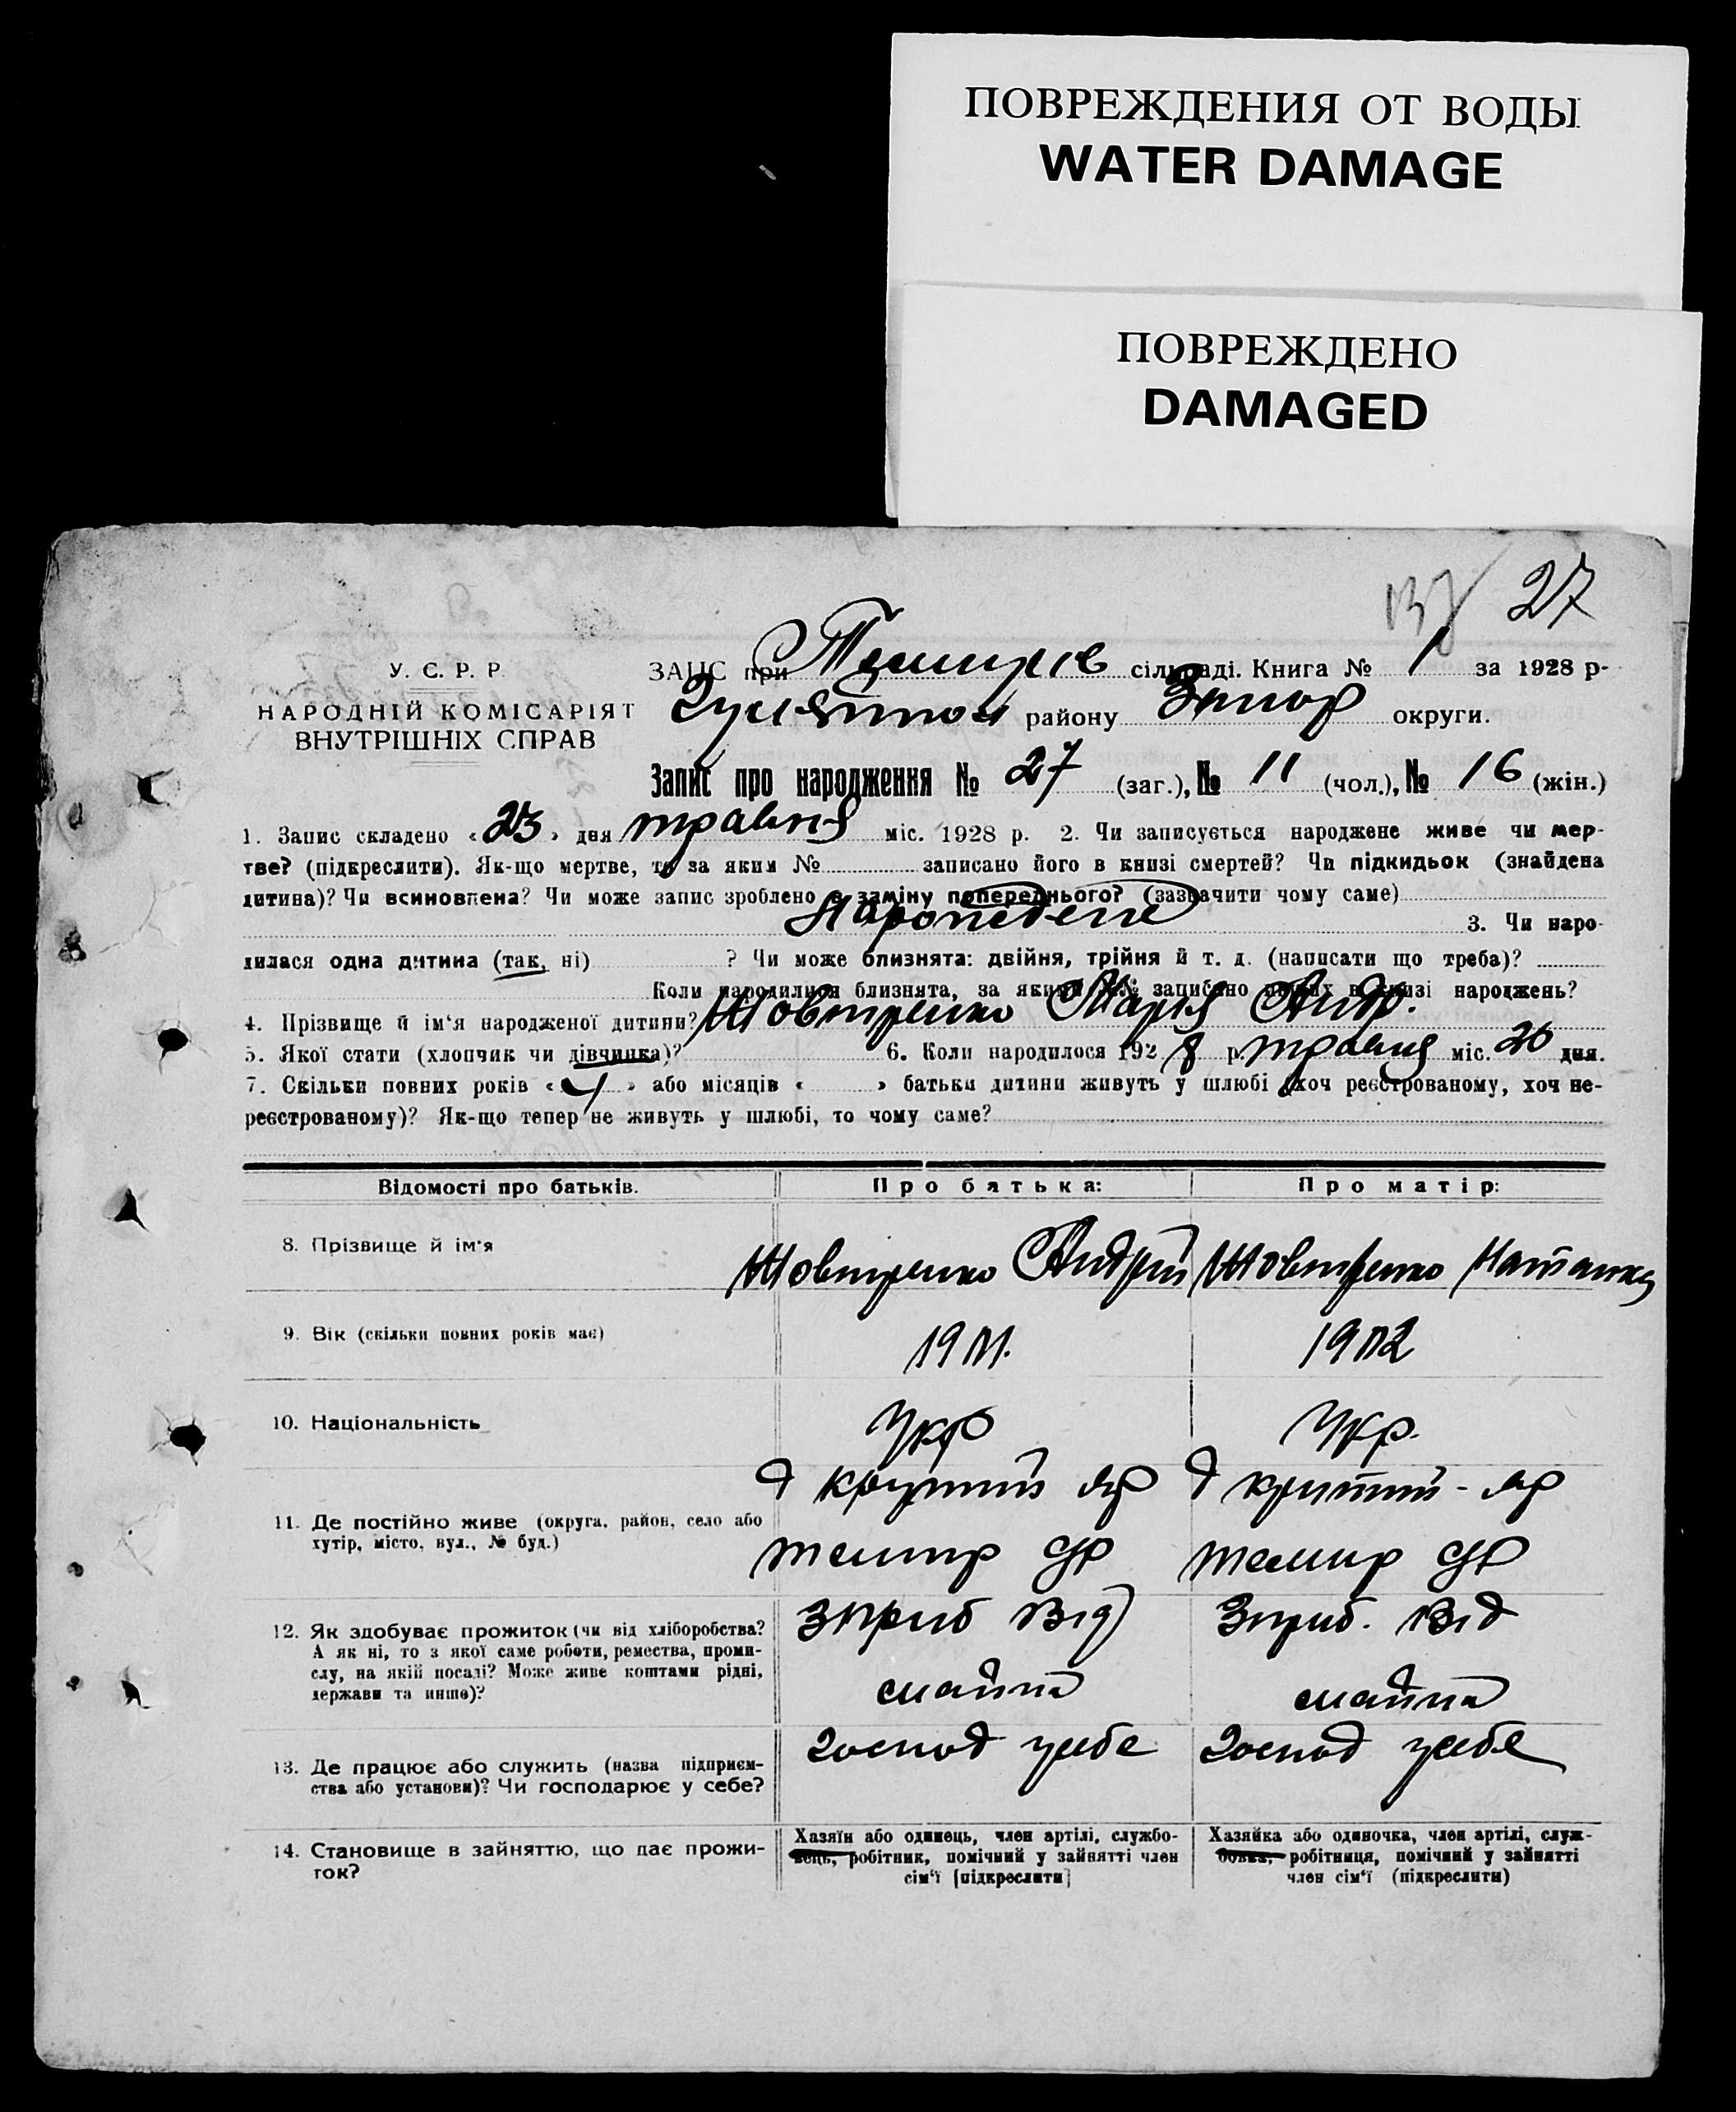 ПОВРЕЖДЕНИЯ ОТ ВОДЫ
WATER DAMAGE
ПОВРЕЖДЕНО
DAMAGED
27
У. С. Р. Р.
НАРОДНІЙ КОМІСАРІЯТ
ВНУТРІШНІХ СПРАВ
ЗАПС при Темирів сільраді. Книга № 1 за 1928 р-
району Запор округи.
Запис про народження № 27 (заг.), № 11 (чол.), № 16 (жін.)
1. Запис складено « 23 » дня травня міс. 1928 р. 2. Чи записується народжене живе чи мер-
тве? (підкреслити). Як-що мертве, то за яким № записано його в книзі смертей? Чи підкидьок (знайдена
дитина)? Чи всиновлена? Чи може запис зроблено в заміну попереднього? (зазначити чому саме)
3. Чи наро-
дилася одна дитина (так, ні) ? Чи може близнята: двійня, трійня й т. д. (написати що треба)?
Коли народилися близнята, за якими №№ записано інших в книзі народжень?
4. Прізвище й ім'я народженої дитини? Жовтренко Марія Андр.
5. Якої стати (хлопчик чи дівчинка)? 6. Коли народилося 192 8 р. травня міс. 20 дня.
7. Скільки повних років « 4 » або місяців « » батьки дитини живуть у шлюбі (хоч реєстрованому, хоч не-
реєстрованому)? Як-що тепер не живуть у шлюбі, то чому саме?
Відомості про батьків. Про батька: Про матір:
8. Прізвище й ім'я Жовтренко Андрій Жовтренко Наталка
9. Вік (скільки повних років має)
10. Національність Укр Укр.
х крутий яр х крутий - яр
11. Де постійно живе (округа, район, село або
хутір, місто, вул., № буд.)
темир с/р темир с/р
12. Як здобуває прожиток (чи від хліборобства? Зприб від Зприб. від
А як ні, то з якої саме роботи, ремества, проми-
слу, на якій посаді? Може живе коштами рідні,
держави та инше)?
майна майна
13. Де працює або служить (назва підприєм- господ усебе господ усебе
ства або установи)? Чи господарює у себе?
14. Становище в зайняттю, що дає прожи-
ток?
Хазяїн або одинець, член артілі, службо-
вець, робітник, помічний у зайнятті член
сім'ї [підкреслити]
Хазяйка або одиночка, член артілі, служ-
бовка, робітниця, помічний у зайнятті
член сім'ї (підкреслити)